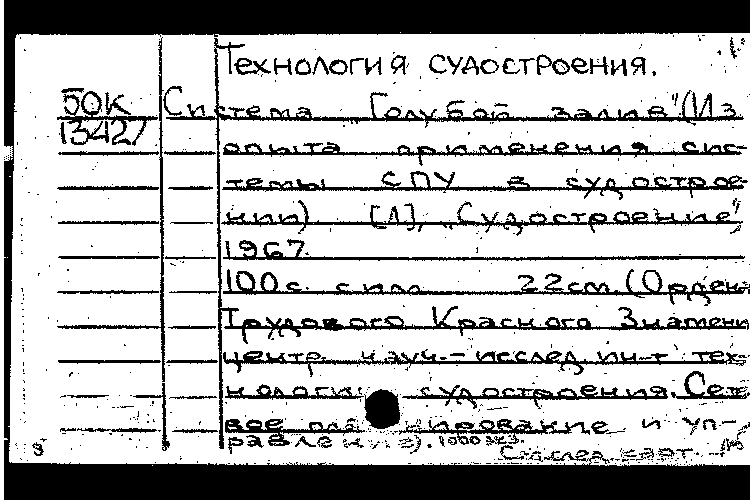 Технология судостроения.
БОК Система „Голубой залив" (Из
13427
опыта применения сис-
темы СПУ в судострое-
нии) [Л], „Судостроение",
1967.
100с. с илл 22см. (Орден
Трудового Красного Знамени
центр. науч.-исслед. ин-т тех-
нологии судостроения. Сете-
вое планирование и уп-
равление). 1000 экз.
См. след. карт.